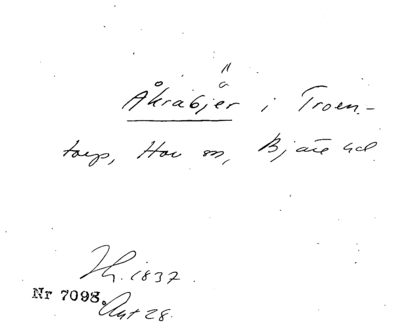 Åkrabjär i Troen-
torp, Hov sn, Bjäre hd
Lh. 1837.
Nr 7098. Akt 28.